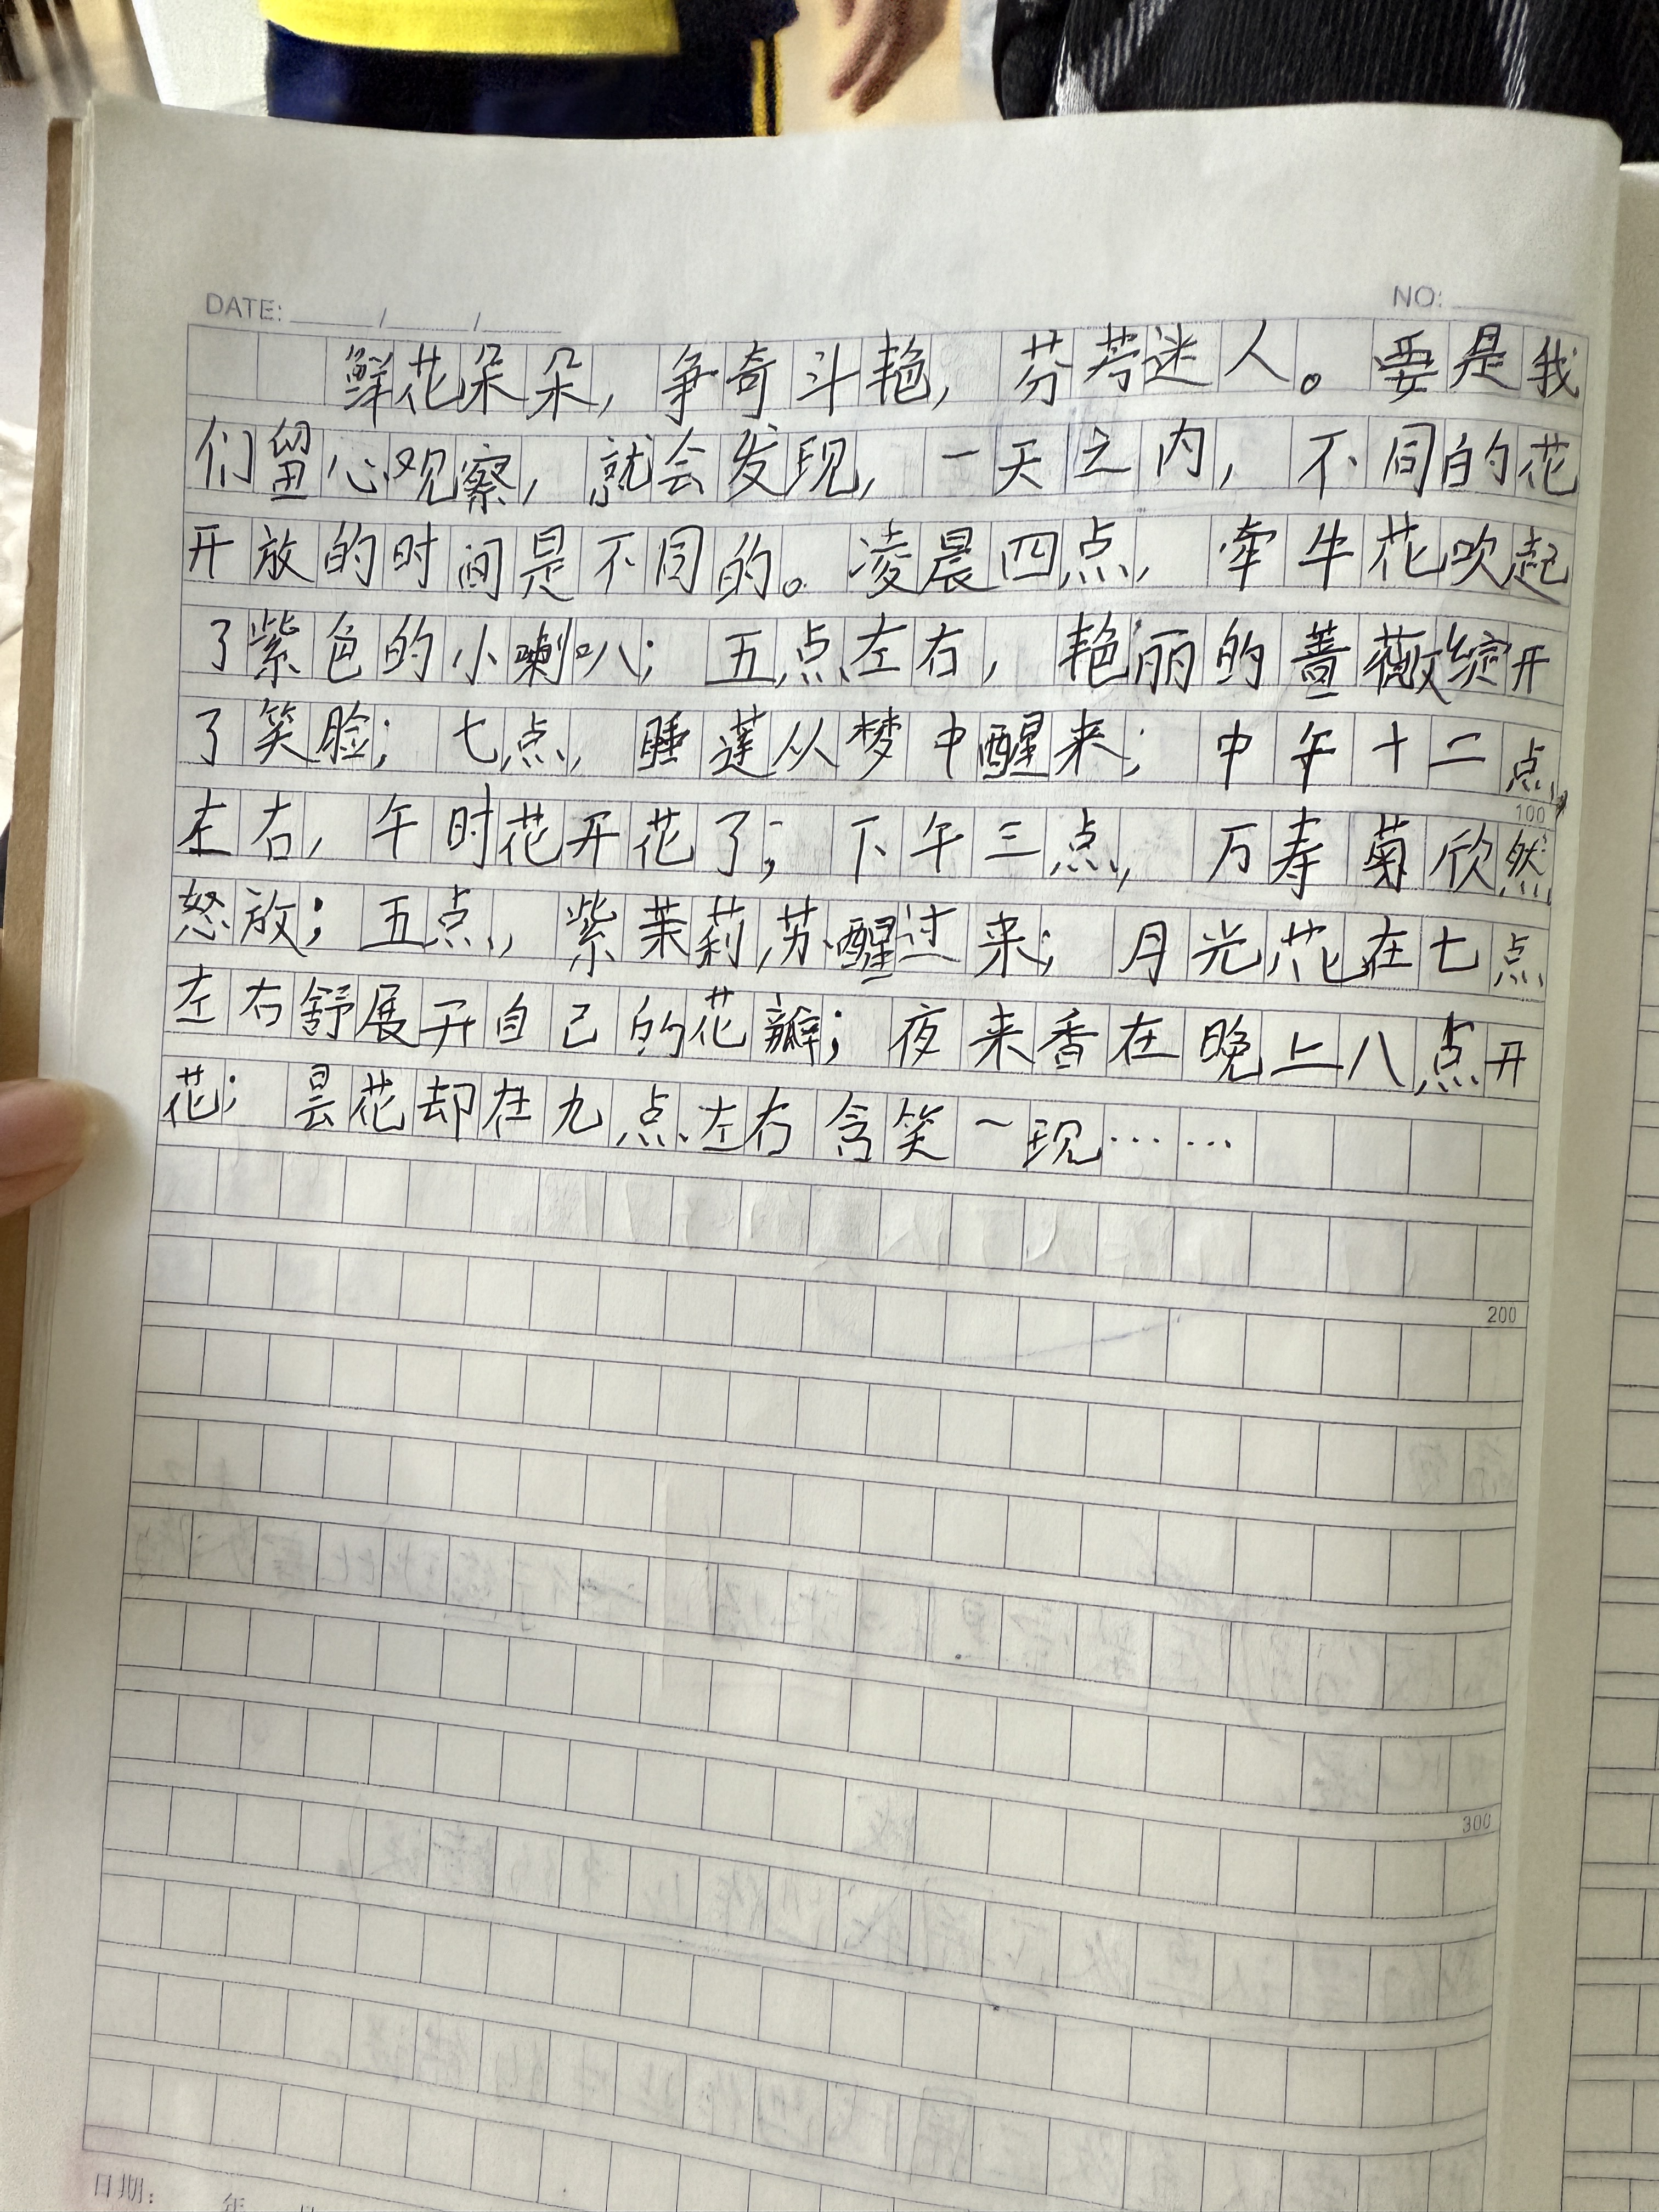 DATE: ____/____/____ NO: ____
鲜花朵朵，争奇斗艳，芬芳迷人。要是我
们留心观察，就会发现，一天之内，不同的花
开放的时间是不同的。凌晨四点，牵牛花吹起
了紫色的小喇叭；五点左右，艳丽的蔷薇绽开
了笑脸；七点，睡莲从梦中醒来；中午十二点
100
左右，午时花开花了；下午三点，万寿菊欣然
怒放；五点，紫茉莉苏醒过来；月光花在七点
左右舒展开自己的花瓣；夜来香在晚上八点开
花；昙花却在九点左右含笑一现……
200
300
日期： 年